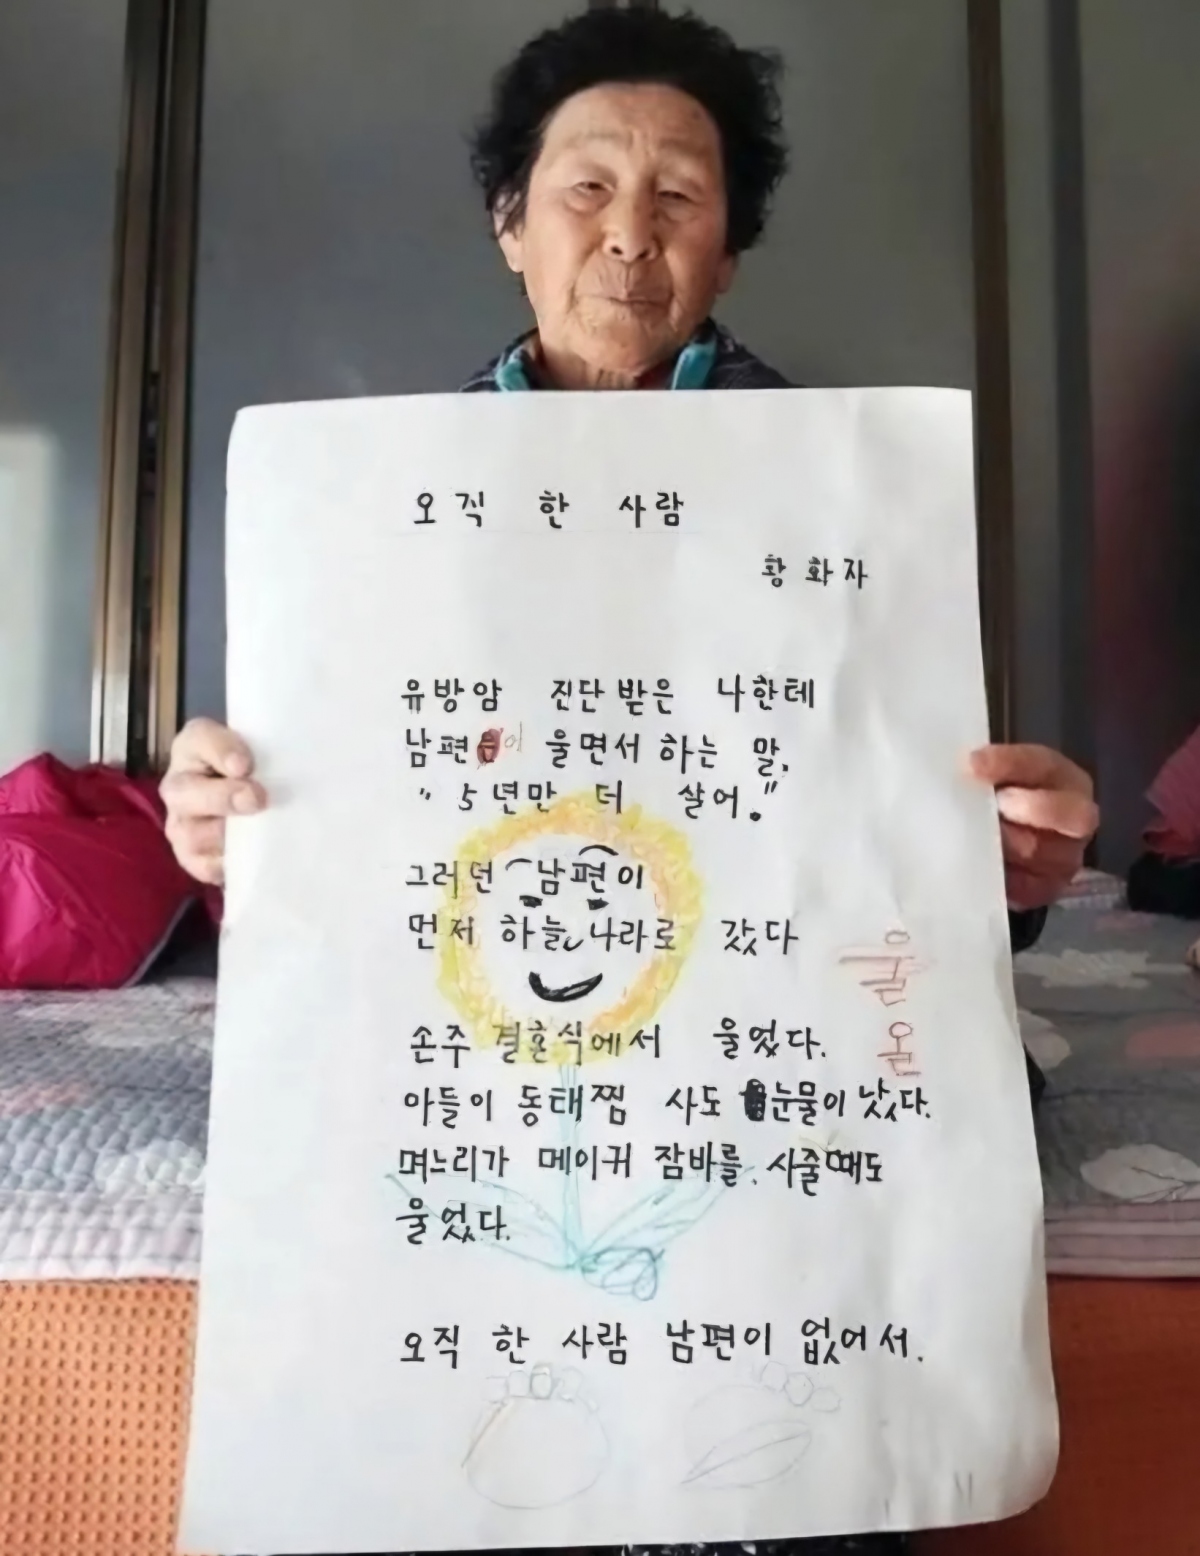 오직 한 사람
황화자
유방암 진단 받은 나한테
남편이 울면서 하는 말,
"5년만 더 살어."
그러던 남편이
먼저 하늘나라로 갔다
손주 결혼식에서 울었다.
아들이 동태찜 사도 눈물이 낫다.
며느리가 메이귀 잠바를 사줄때도
울었다.
오직 한 사람 남편이 없어서.